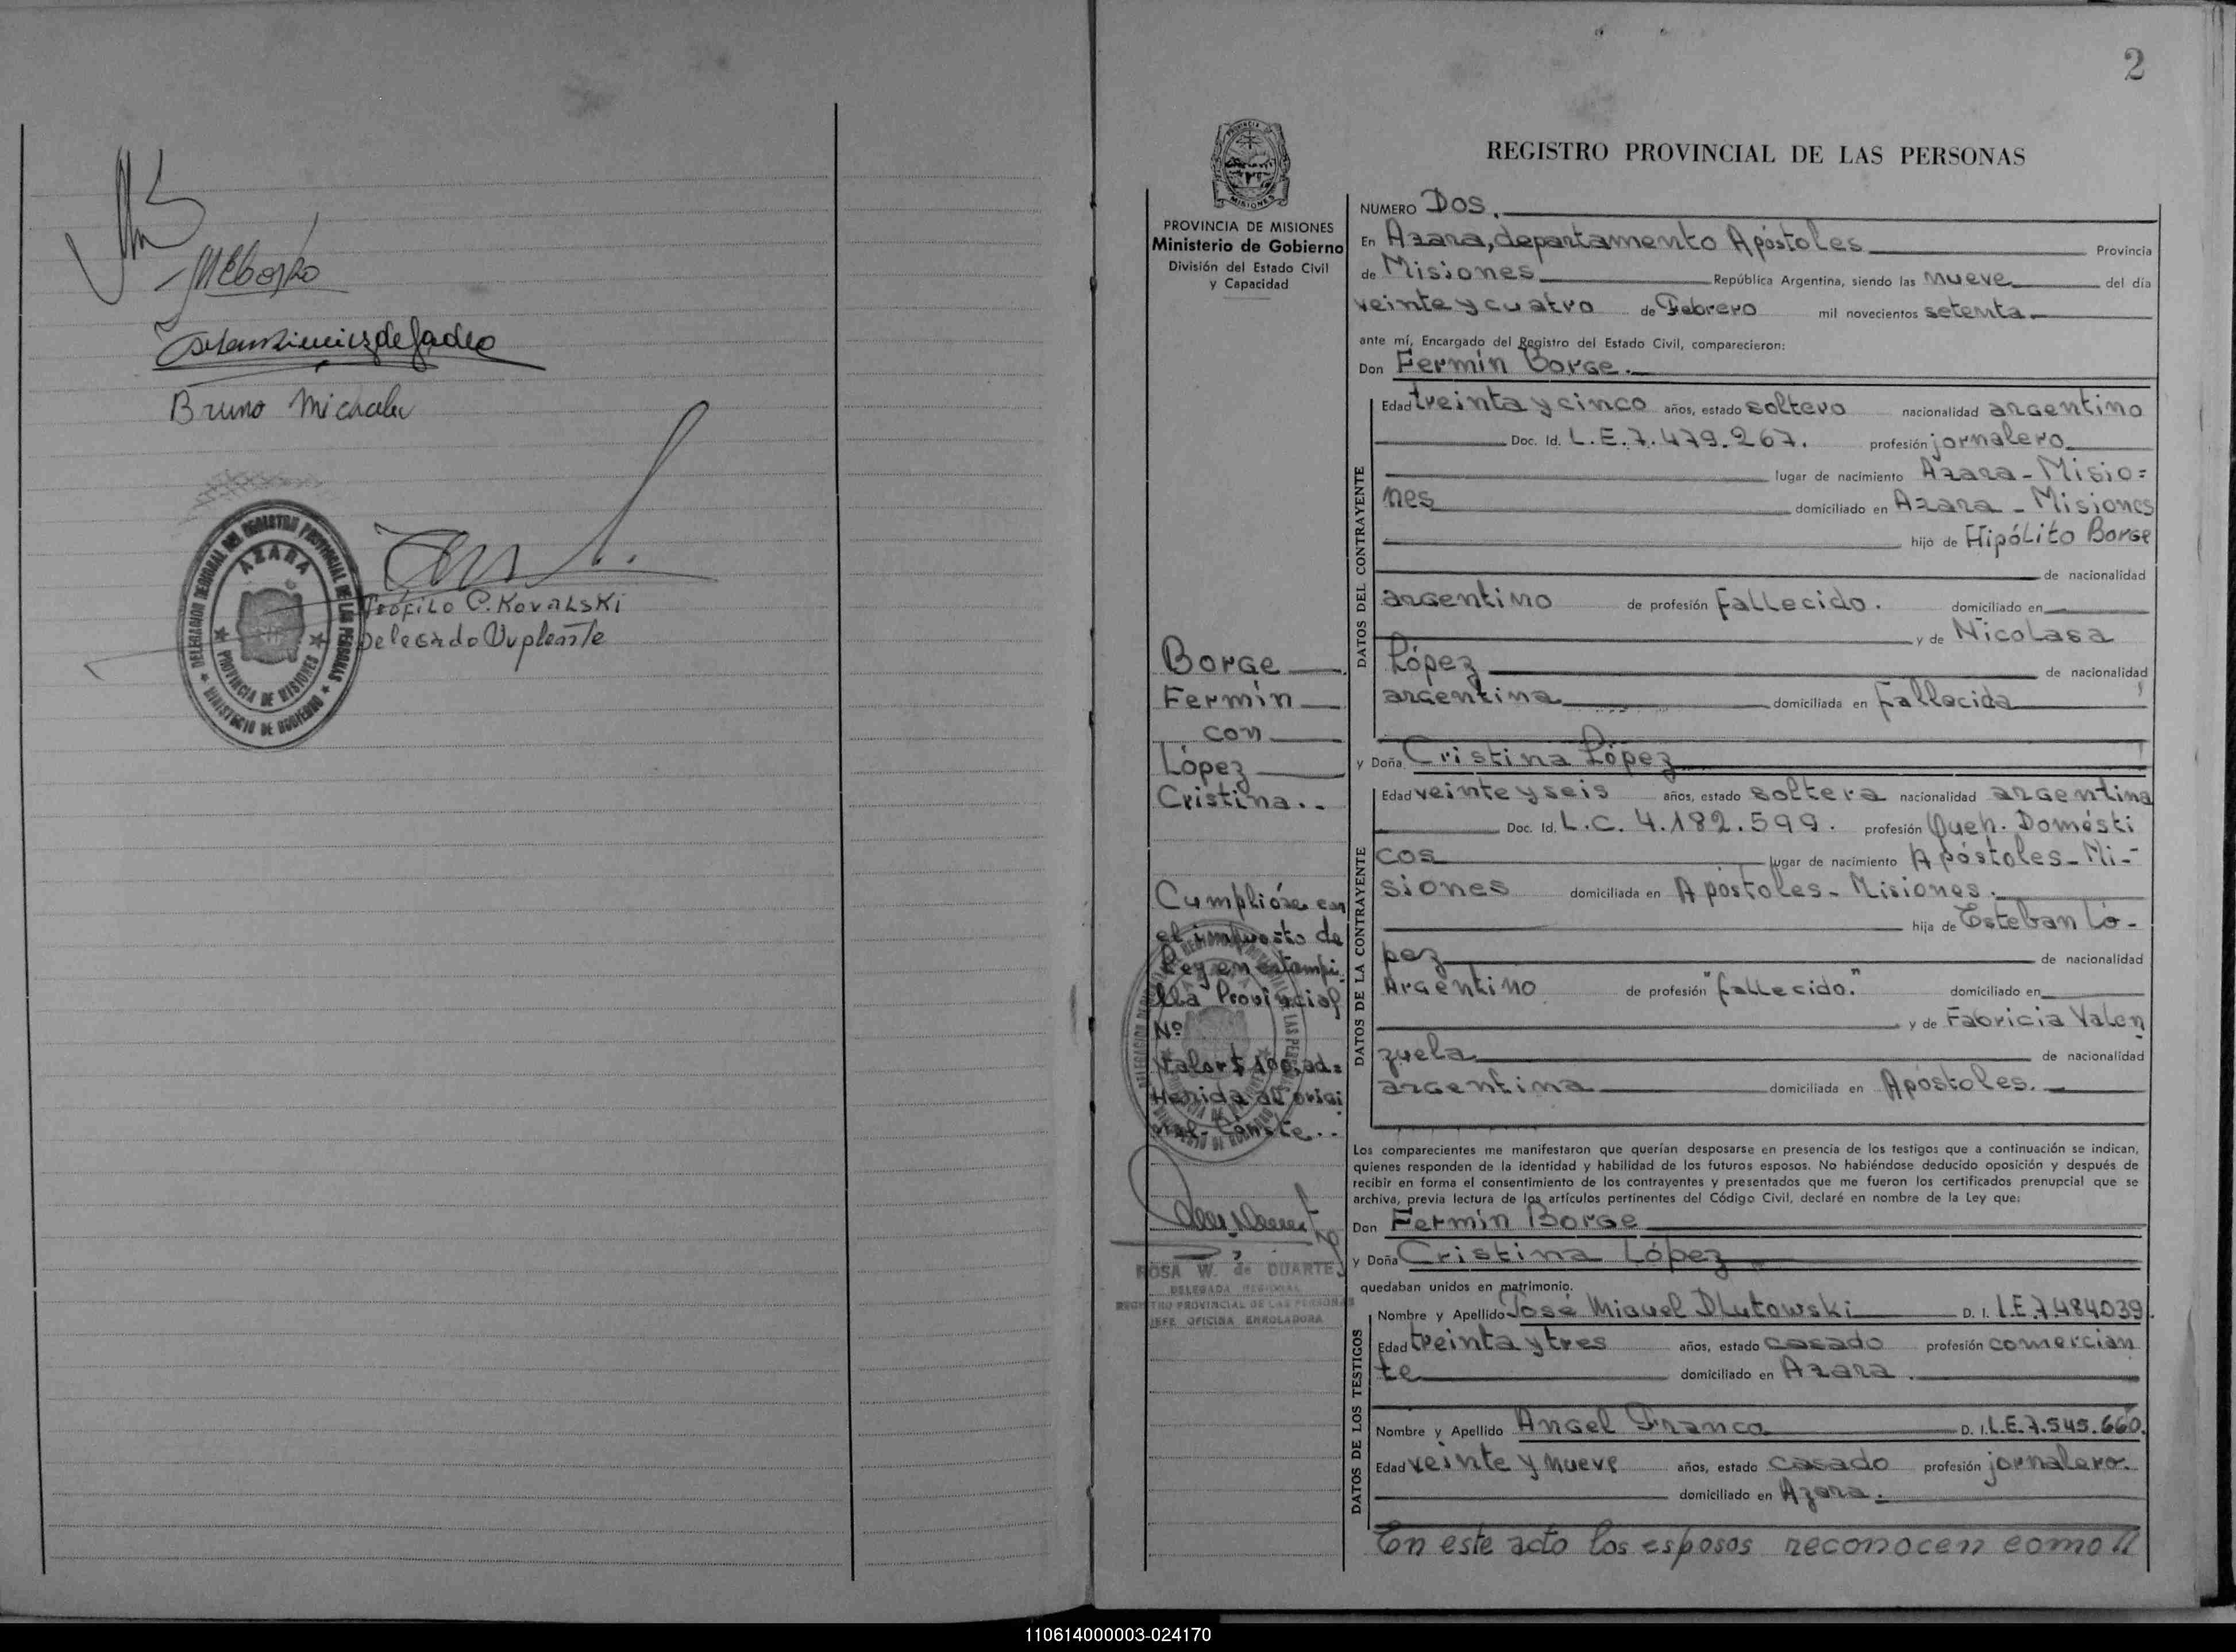 Bruno Michalu
DELEGACION REGIONAL DEL REGISTRO PROVINCIAL DE LAS PERSONAS
AZARA
PROVINCIA DE MISIONES
MINISTERIO DE GOBIERNO
Teófilo C. Kovalski
Delegado Suplente
2
PROVINCIA DE MISIONES
Ministerio de Gobierno
División del Estado Civil
y Capacidad
Borge
Fermín
con
López
Cristina..
Cumplióse con
el impuesto de
Ley en estampi
lla Provincial
Nº
Valor $ 100, ad=
herida al origi
nal. Conste..
ROSA W. de DUARTE
DELEGADA REGIONAL
REGISTRO PROVINCIAL DE LAS PERSONAS
JEFE OFICINA ENROLADORA
REGISTRO PROVINCIAL DE LAS PERSONAS
NUMERO Dos.
En Azara, departamento Apóstoles Provincia
de Misiones República Argentina, siendo las nueve del día
veinte y cuatro de Febrero mil novecientos setenta.
ante mí, Encargado del Registro del Estado Civil, comparecieron:
Don Fermín Borge.
DATOS DEL CONTRAYENTE
Edad treinta y cinco años, estado soltero nacionalidad argentino
Doc. Id. L.E.7.479.267. profesión jornalero
lugar de nacimiento Azara-Misio=
nes domiciliado en Azara - Misiones
hijo de Hipólito Borge
de nacionalidad
argentino de profesión fallecido. domiciliado en
y de Nicolasa
López de nacionalidad
argentina domiciliada en fallecida
y Doña Cristina López
DATOS DE LA CONTRAYENTE
Edad veinte y seis años, estado soltera nacionalidad argentina
Doc. Id. L.C. 4.182.599. profesión Queh. Domésti
cos lugar de nacimiento Apóstoles-Mi-
siones domiciliada en Apóstoles-Misiones.
hija de Esteban Ló-
pez de nacionalidad
Argentino de profesión "fallecido." domiciliado en
y de Fabricia Valen
zuela de nacionalidad
argentina domiciliada en Apóstoles.
Los comparecientes me manifestaron que querían desposarse en presencia de los testigos que a continuación se indican,
quienes responden de la identidad y habilidad de los futuros esposos. No habiéndose deducido oposición y después de
recibir en forma el consentimiento de los contrayentes y presentados que me fueron los certificados prenupcial que se
archiva, previa lectura de los artículos pertinentes del Código Civil, declaré en nombre de la Ley que:
Don Fermín Borge
y Doña Cristina López
quedaban unidos en matrimonio.
DATOS DE LOS TESTIGOS
Nombre y Apellido José Miguel Dlutowski D. I. L.E.7.484.039.
Edad treinta y tres años, estado casado profesión comercian
te domiciliado en Azara.
Nombre y Apellido Angel Franco D. I. L.E.7.545.660.
Edad veinte y nueve años, estado casado profesión jornalero.
domiciliado en Azara.
En este acto los esposos reconocen como //
110614000003-024170